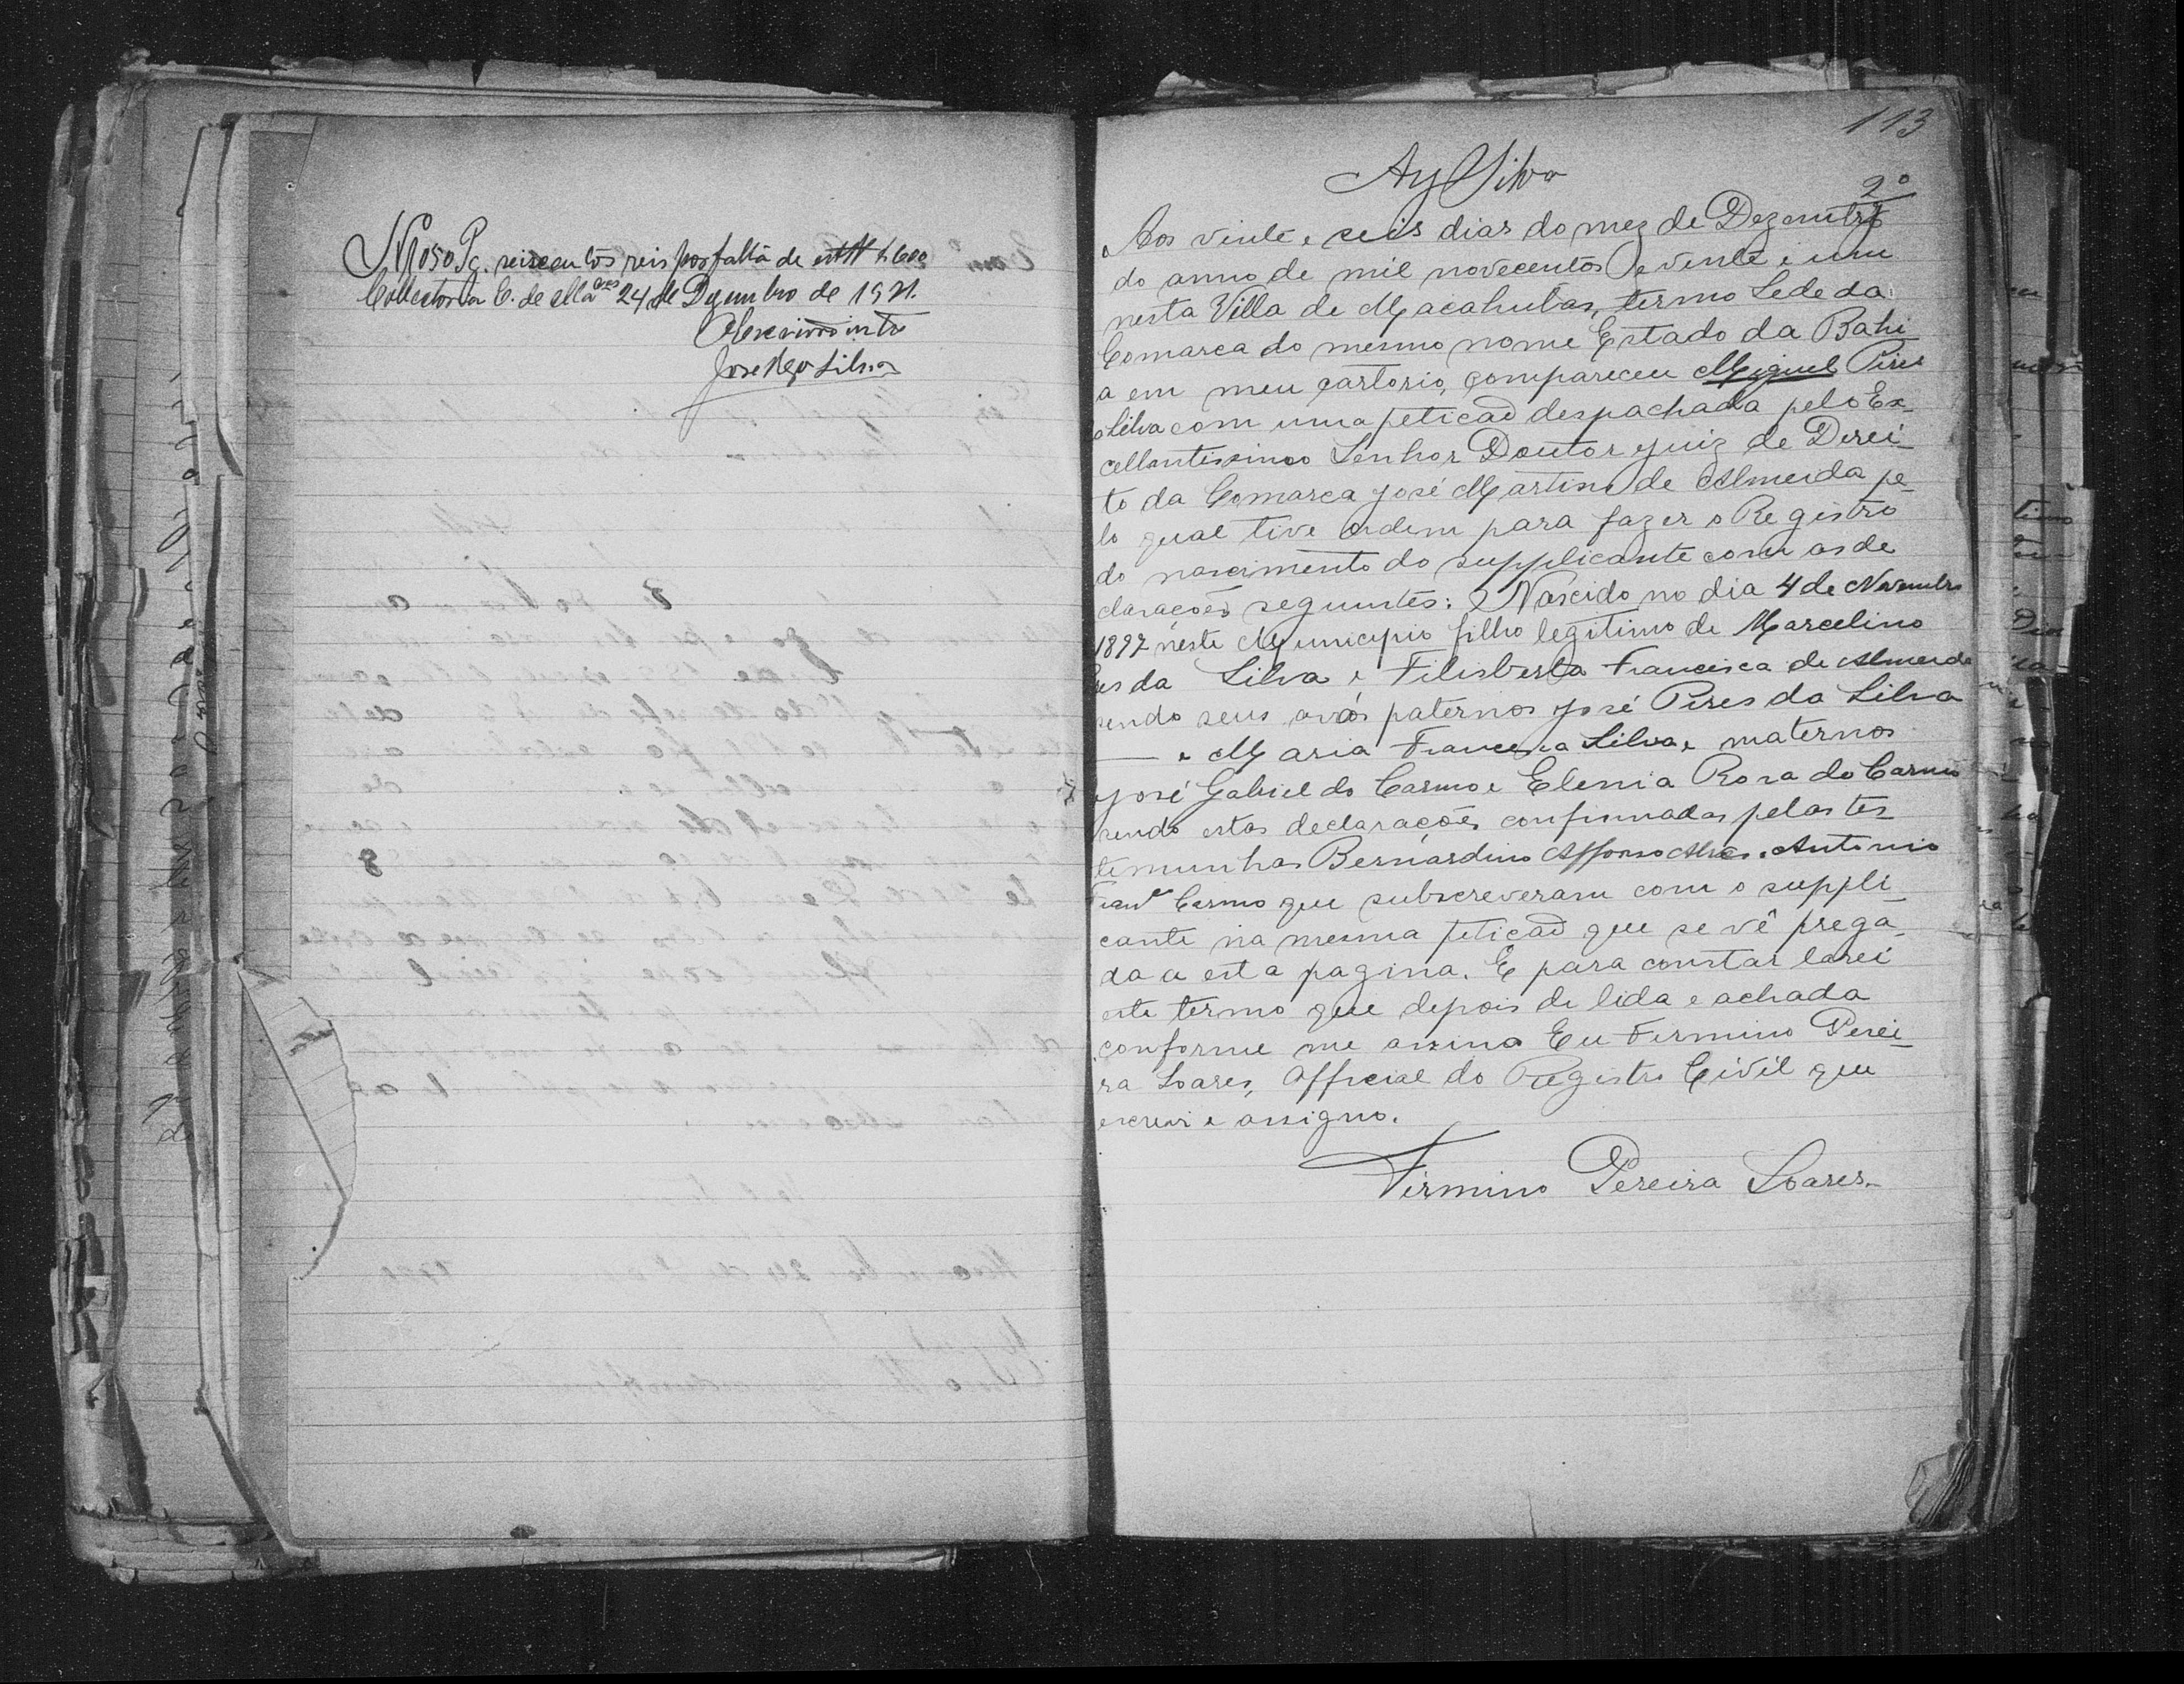 Nº 1050 Pg. seiscentos reis por falta de estª $600
Collectoria E. de Mªcas 24 de Dezembro de 1921.
O Escrivão intº
José Rego Silva
113
Ay Silva
2º
Aos vinte e seis dias do mez de Dezembro
do anno de mil novecentos e vinte e um
nesta Villa de Macahubas, termo Sede da
Comarca do mesmo nome Estado da Bahi
a em meu cartorio, compareceu Miguel Pires
Silva com uma petição despachada pelo Ex-
cellentissimo Senhor Doutor Juiz de Direi-
to da Comarca José Martins de Almeida pe-
lo qual tive ordem para fazer o Registro
do nascimento do supplicante com as de
clarações seguintes: Nascido no dia 4 de Novembro
1897 neste Municipio filho legitimo de Marcelino
res da Silva e Filisberta Francisca de Almeida
sendo seus avós paternos José Pires da Silva
— e Maria Francisca Silva e maternos
José Gabriel do Carmo e Elenia Rosa do Carmo
sendo estas declarações confirmadas pelas tes-
temunhas Bernardino Affonso Alves e Antonio
Franº Carmo que subscreveram com o suppli-
cante na mesma petição que se vê prega-
da a esta pagina. E para constar larei
este termo que depois de lida e achada
conforme me assina Eu Firmino Perei-
ra Soares, Official do Registro Civil que
escrevi e assigno.
Firmino Pereira Soares.